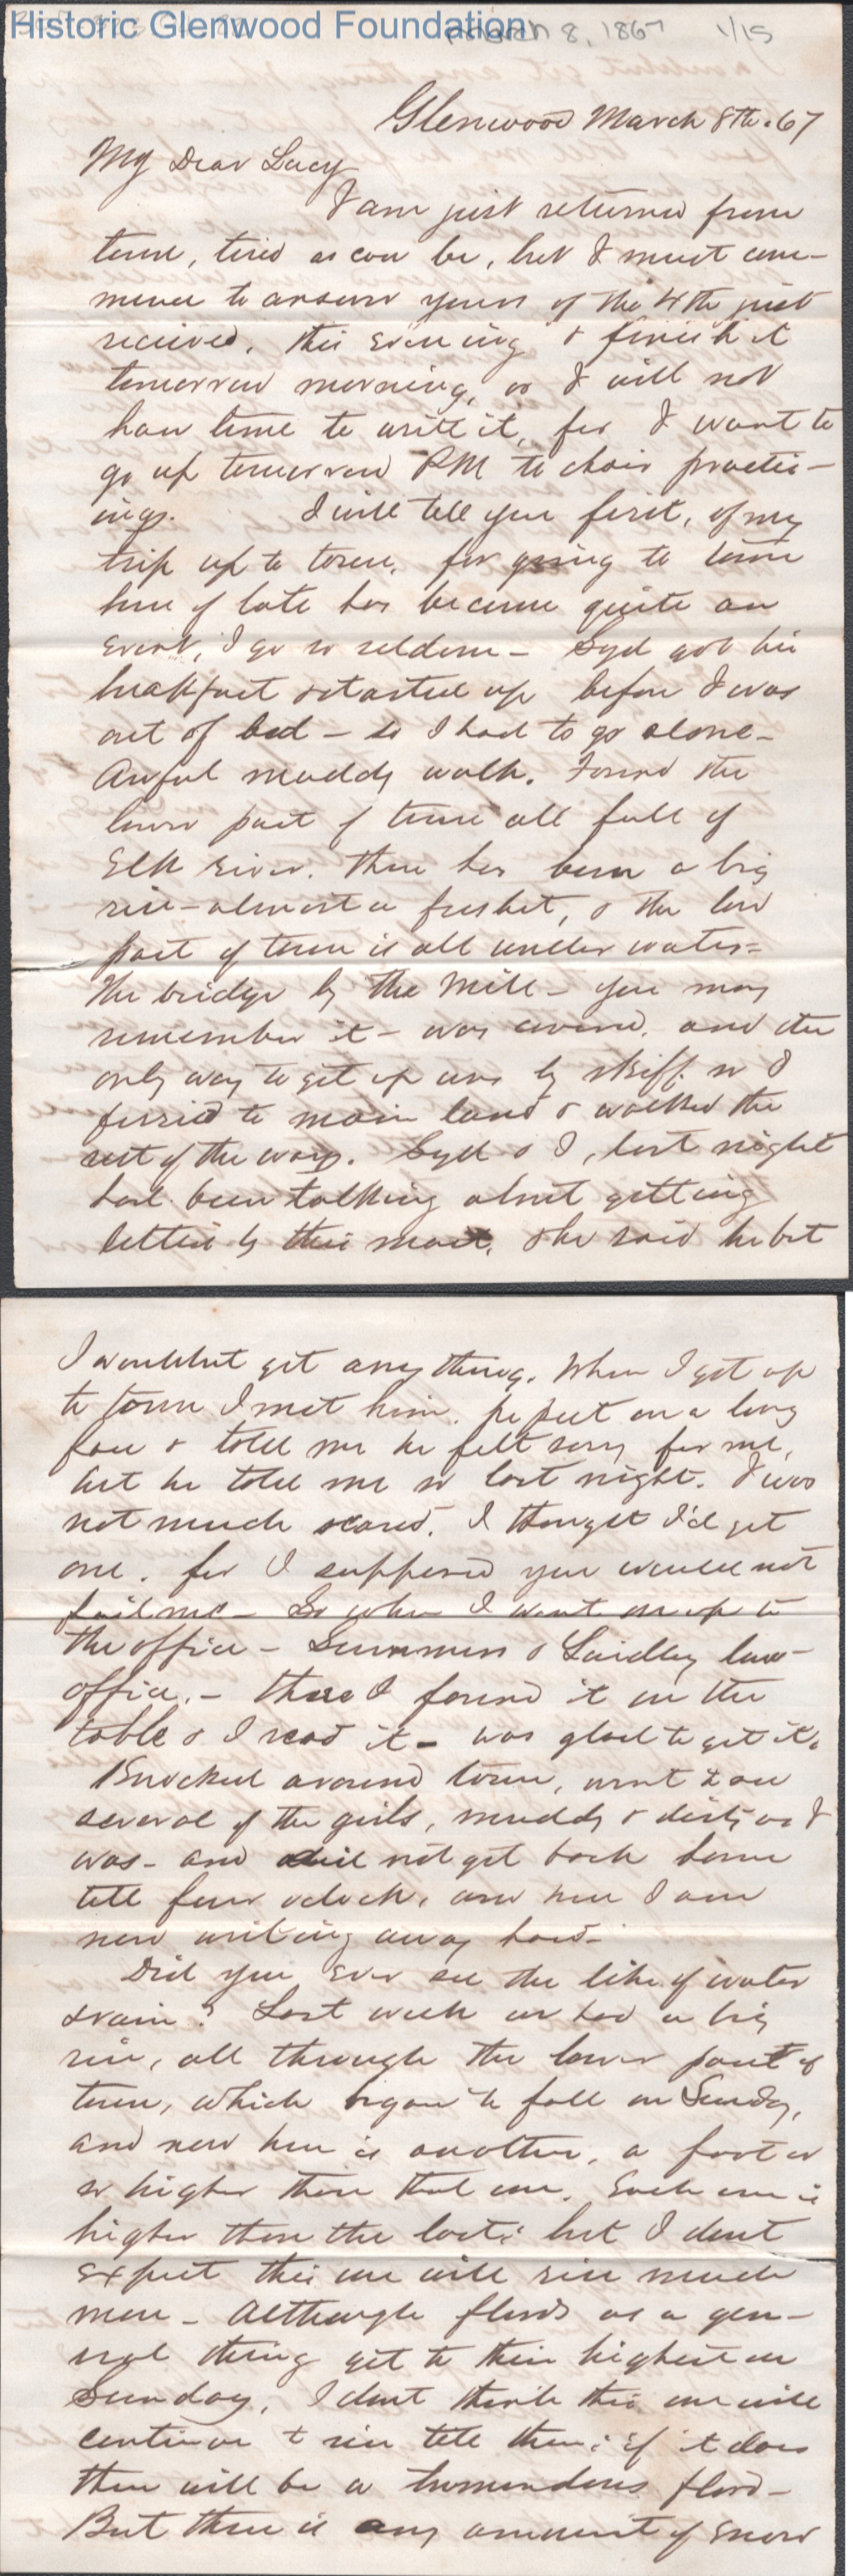 Historic Glenwood Foundation
March 8, 1867 1/15
Glenwood March 8th. 67
My Dear Lucy
I am just returned from
town, tired as can be, but I must com-
mence to answer yours of the 4th just
received, this evening & finish it
tomorrow morning, or I will not
have time to write it, for I want to
go up tomorrow PM to choir practic-
ings. I will tell you first, of my
trip up to town, for going to town
here of late has become quite an
event, I go so seldom - Syd got his
breakfast & started up before I was
out of bed - so I had to go alone -
Awful muddy walk. Found the
lower part of town all full of
Elk river. There has been a big
rise - almost a freshet, & the low
part of town is all under water -
The bridge by the Mill - you may
remember it - was covered, and the
only way to get up was by skiff, so I
ferried to main land & walked the
rest of the way. Syd & I, last night
had been talking about getting
letters by this mail, & he said he bet
I wouldnt get any thing. When I got up
to town I met him. he put on a long
face & told me he felt sorry for me,
but he told me so last night. I was
not much scared. I thought I'd get
one, for I supposed you would not
fail me - So when I went on up to
the office - Summers & Laidley law -
office, - there I found it on the
table & I read it - was glad to get it.
Knocked around town, went to see
several of the girls, muddy & dirty as I
was - and did not get back home
till four oclock, and here I am
now writing away hard -
Did you ever see the like of water
& rain? Last week we had a big
rise, all through the lower part of
town, which began to fall on Sunday,
and now here is another, a foot or
so higher than that one. Each one is
higher than the last: but I dont
expect this one will rise much
more - Although floods as a gen-
eral thing get to their highest on
Sunday, I dont think this one will
continue to rise till then: if it does
there will be a tremendous flood -
But there is any amount of snow